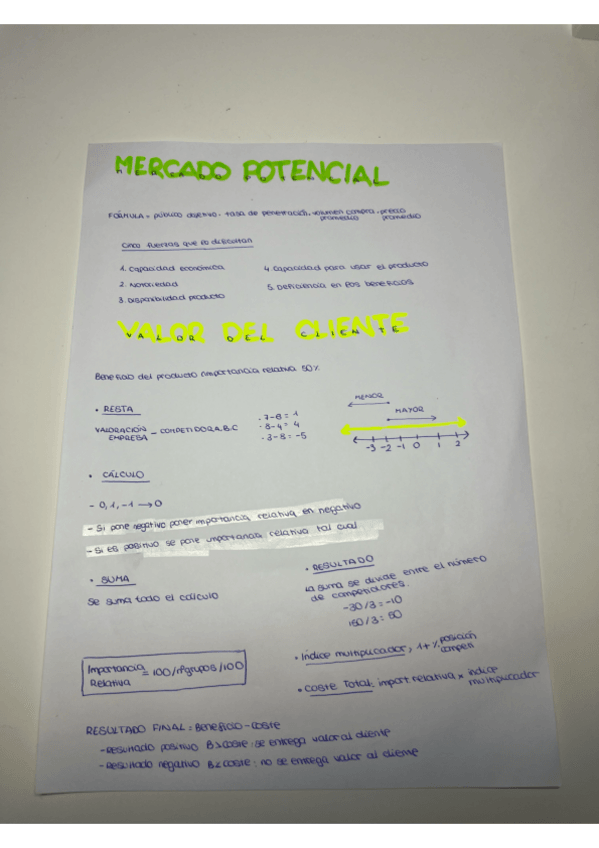 MERCADO POTENCIAL
FÓRMULA = público objetivo · tasa de penetración · volumen compra promedio · precio promedio
Cinco fuerzas que lo
1. Capacidad económica
2. Notoriedad
3. Disponibilidad producto
4. Capacidad para usar el producto
5. Deficiencia en los beneficios
VALOR DEL CLIENTE
Beneficio del producto (importancia relativa 50%
• RESTA
VALORACIÓN EMPRESA - COMPETIDOR A, B, C
· 7-6 = 1
· 8-4 = 4
· 3-8 = -5
MENOR
MAYOR
-3 -2 -1 0 1 2
• CÁLCULO
- 0, 1, -1 → 0
- Si pone negativo poner importancia relativa en negativo
- Si es positivo se pone importancia relativa tal cual
• SUMA
Se suma todo el cálculo
• RESULTADO
La suma se divide entre el número de competidores.
-30/3 = -10
150/3 = 50
Importancia Relativa = 100/nºgrupos/100
• Índice multiplicador, 1+% posición competi
• COSTE TOTAL: import relativa × índice multiplicador
RESULTADO FINAL = Beneficio - coste
- Resultado positivo B>coste: se entrega valor al cliente
- Resultado negativo B<coste: no se entrega valor al cliente